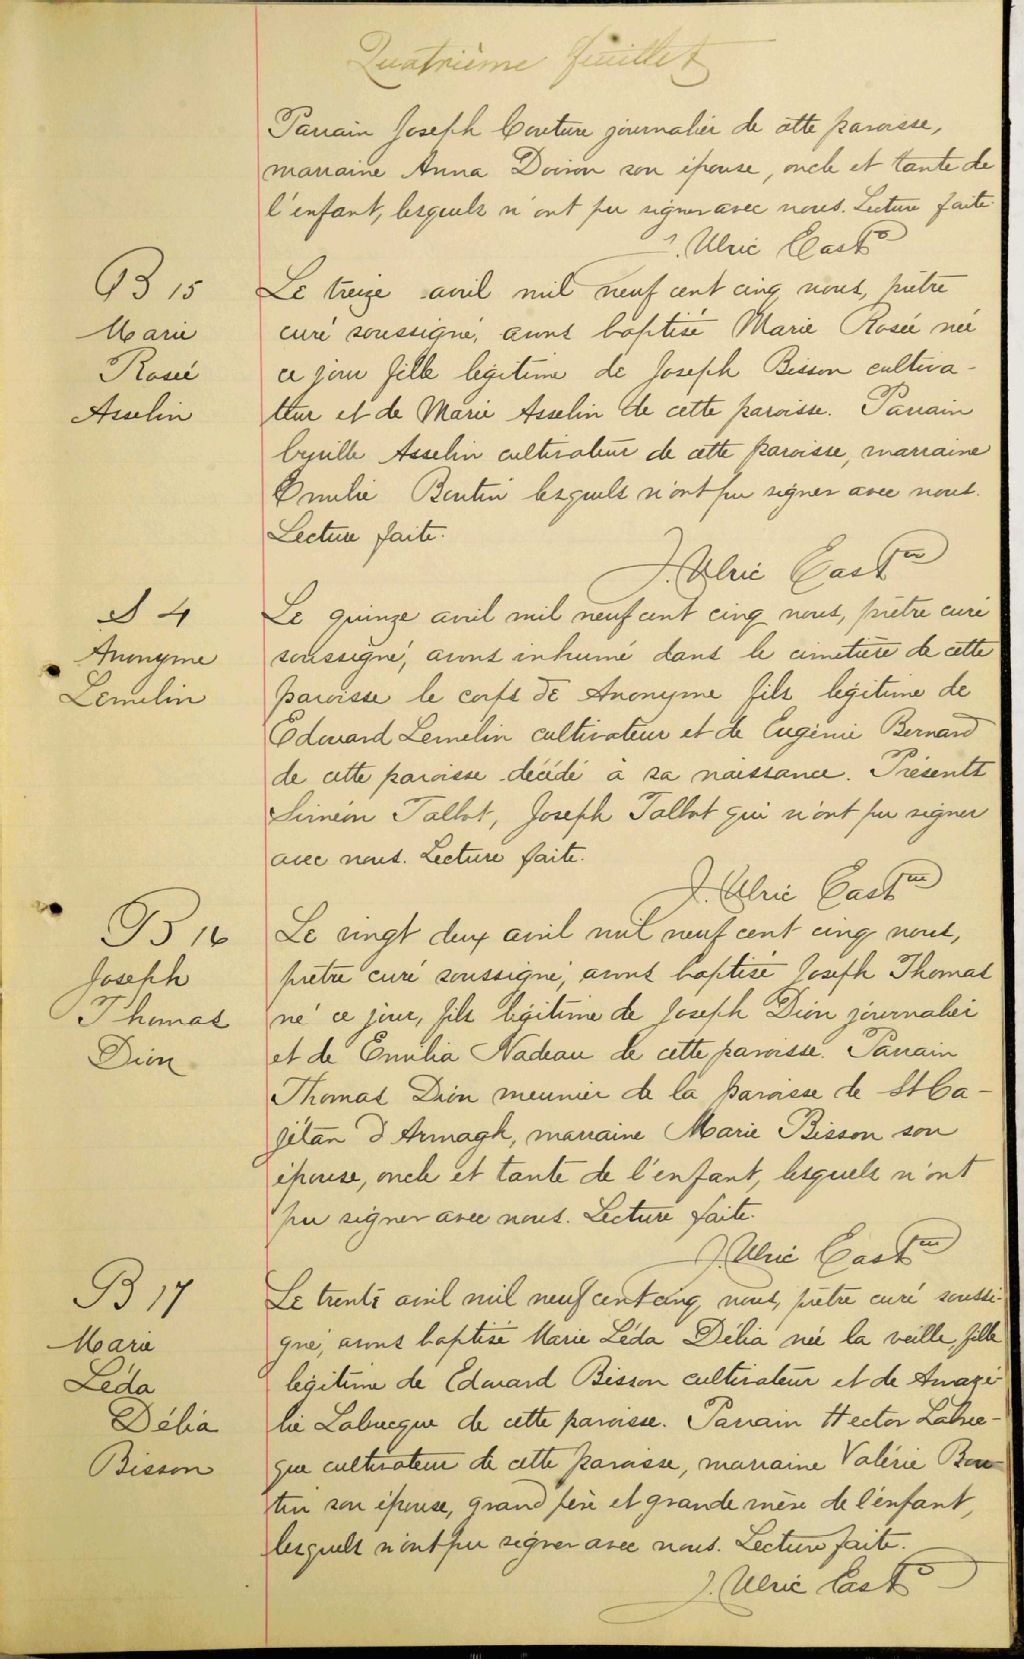 Quatrième feuillet
Parrain Joseph Couture journalier de cette paroisse,
marraine Anna Doiron son épouse, oncle et tante de
l'enfant, lesquels n'ont pu signer avec nous. Lecture faite
J. Ulric East
B 15
Marie
Rosée
Asselin
Le treize avril mil neuf cent cinq nous, prêtre
curé soussigné, avons baptisé Marie Rosée née
ce jour fille légitime de Joseph Bisson cultiva-
teur et de Marie Asselin de cette paroisse. Parrain
Cyrille Asselin cultivateur de cette paroisse, marraine
Emilie Boutin lesquels n'ont pu signer avec nous.
Lecture faite.
J. Ulric East
S 4
Anonyme
Lemelin
Le quinze avril mil neuf cent cinq nous, prêtre curé
soussigné, avons inhumé dans le cimetière de cette
paroisse le corps de Anonyme fils légitime de
Edouard Lemelin cultivateur et de Eugénie Bernard
de cette paroisse décédé à sa naissance. Présents
Siméon Talbot, Joseph Talbot qui n'ont pu signer
avec nous. Lecture faite.
J. Ulric East
B 16
Joseph
Thomas
Dion
Le vingt deux avril mil neuf cent cinq nous,
prêtre curé soussigné, avons baptisé Joseph Thomas
né ce jour, fils légitime de Joseph Dion journalier
et de Emilia Nadeau de cette paroisse. Parrain
Thomas Dion meunier de la paroisse de St Ca-
jétan d'Armagh, marraine Marie Bisson son
épouse, oncle et tante de l'enfant, lesquels n'ont
pu signer avec nous. Lecture faite.
J. Ulric East
B 17
Marie
Léda
Délia
Bisson
Le trente avril mil neuf cent cinq nous, prêtre curé soussi-
gné, avons baptisé Marie Léda Délia née la veille, fille
légitime de Edouard Bisson cultivateur et de Amazé-
lie Labrecque de cette paroisse. Parrain Hector Labrec-
que cultivateur de cette paroisse, marraine Valérie Bou-
tin son épouse, grand père et grande mère de l'enfant,
lesquels n'ont pu signer avec nous. Lecture faite.
J. Ulric East